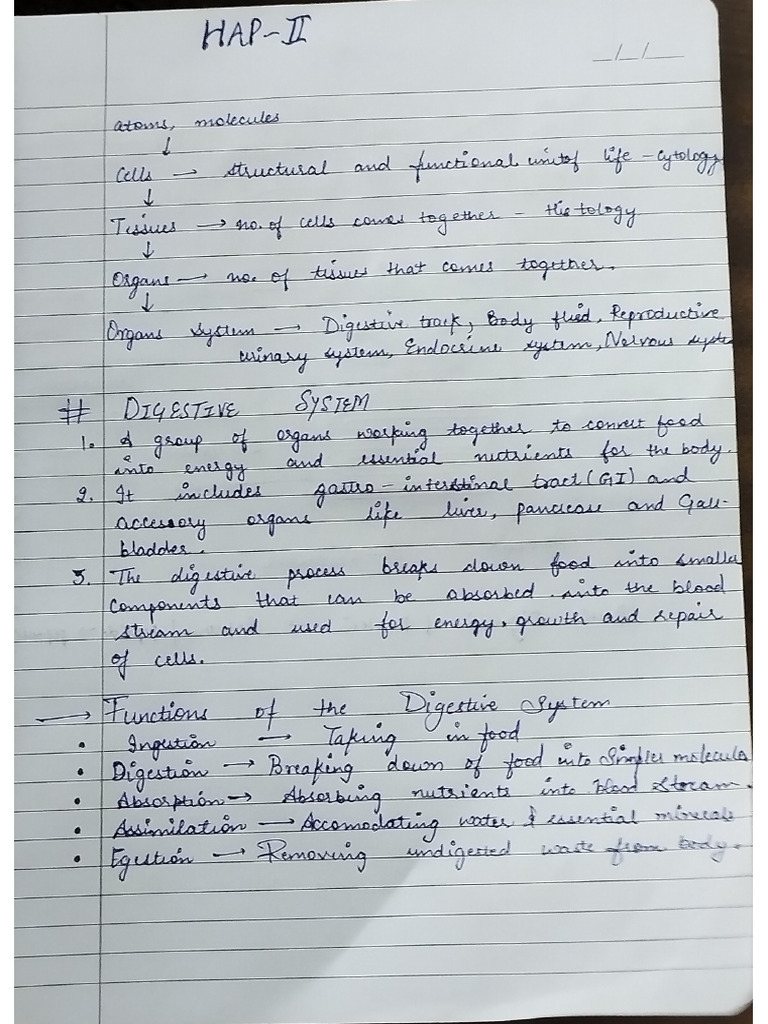 HAP-II
_/_/_
atoms, molecules
↓
Cells → structural and functional unit of life - cytology
↓
Tissues → no. of cells comes together - Histology
↓
Organs → no. of tissues that comes together.
↓
Organs system → Digestive track, Body fluid, Reproductive
urinary system, Endocrine system, Nervous syste
# DIGESTIVE SYSTEM
1. A group of organs working together to convert food
into energy and essential nutrients for the body.
2. It includes gastro-intestinal tract (GI) and
accessory organs like liver, pancrease and Gall-
bladder.
3. The digestive process breaks down food into smaller
components that can be absorbed into the blood
stream and used for energy, growth and repair
of cells.
→ Functions of the Digestive System
• Ingestion → Taking in food
• Digestion → Breaking down of food into simpler molecula
• Absorption → Absorbing nutrients into blood stream.
• Assimilation → Accomodating water & essential minerals
• Egestion → Removing undigested waste from body.